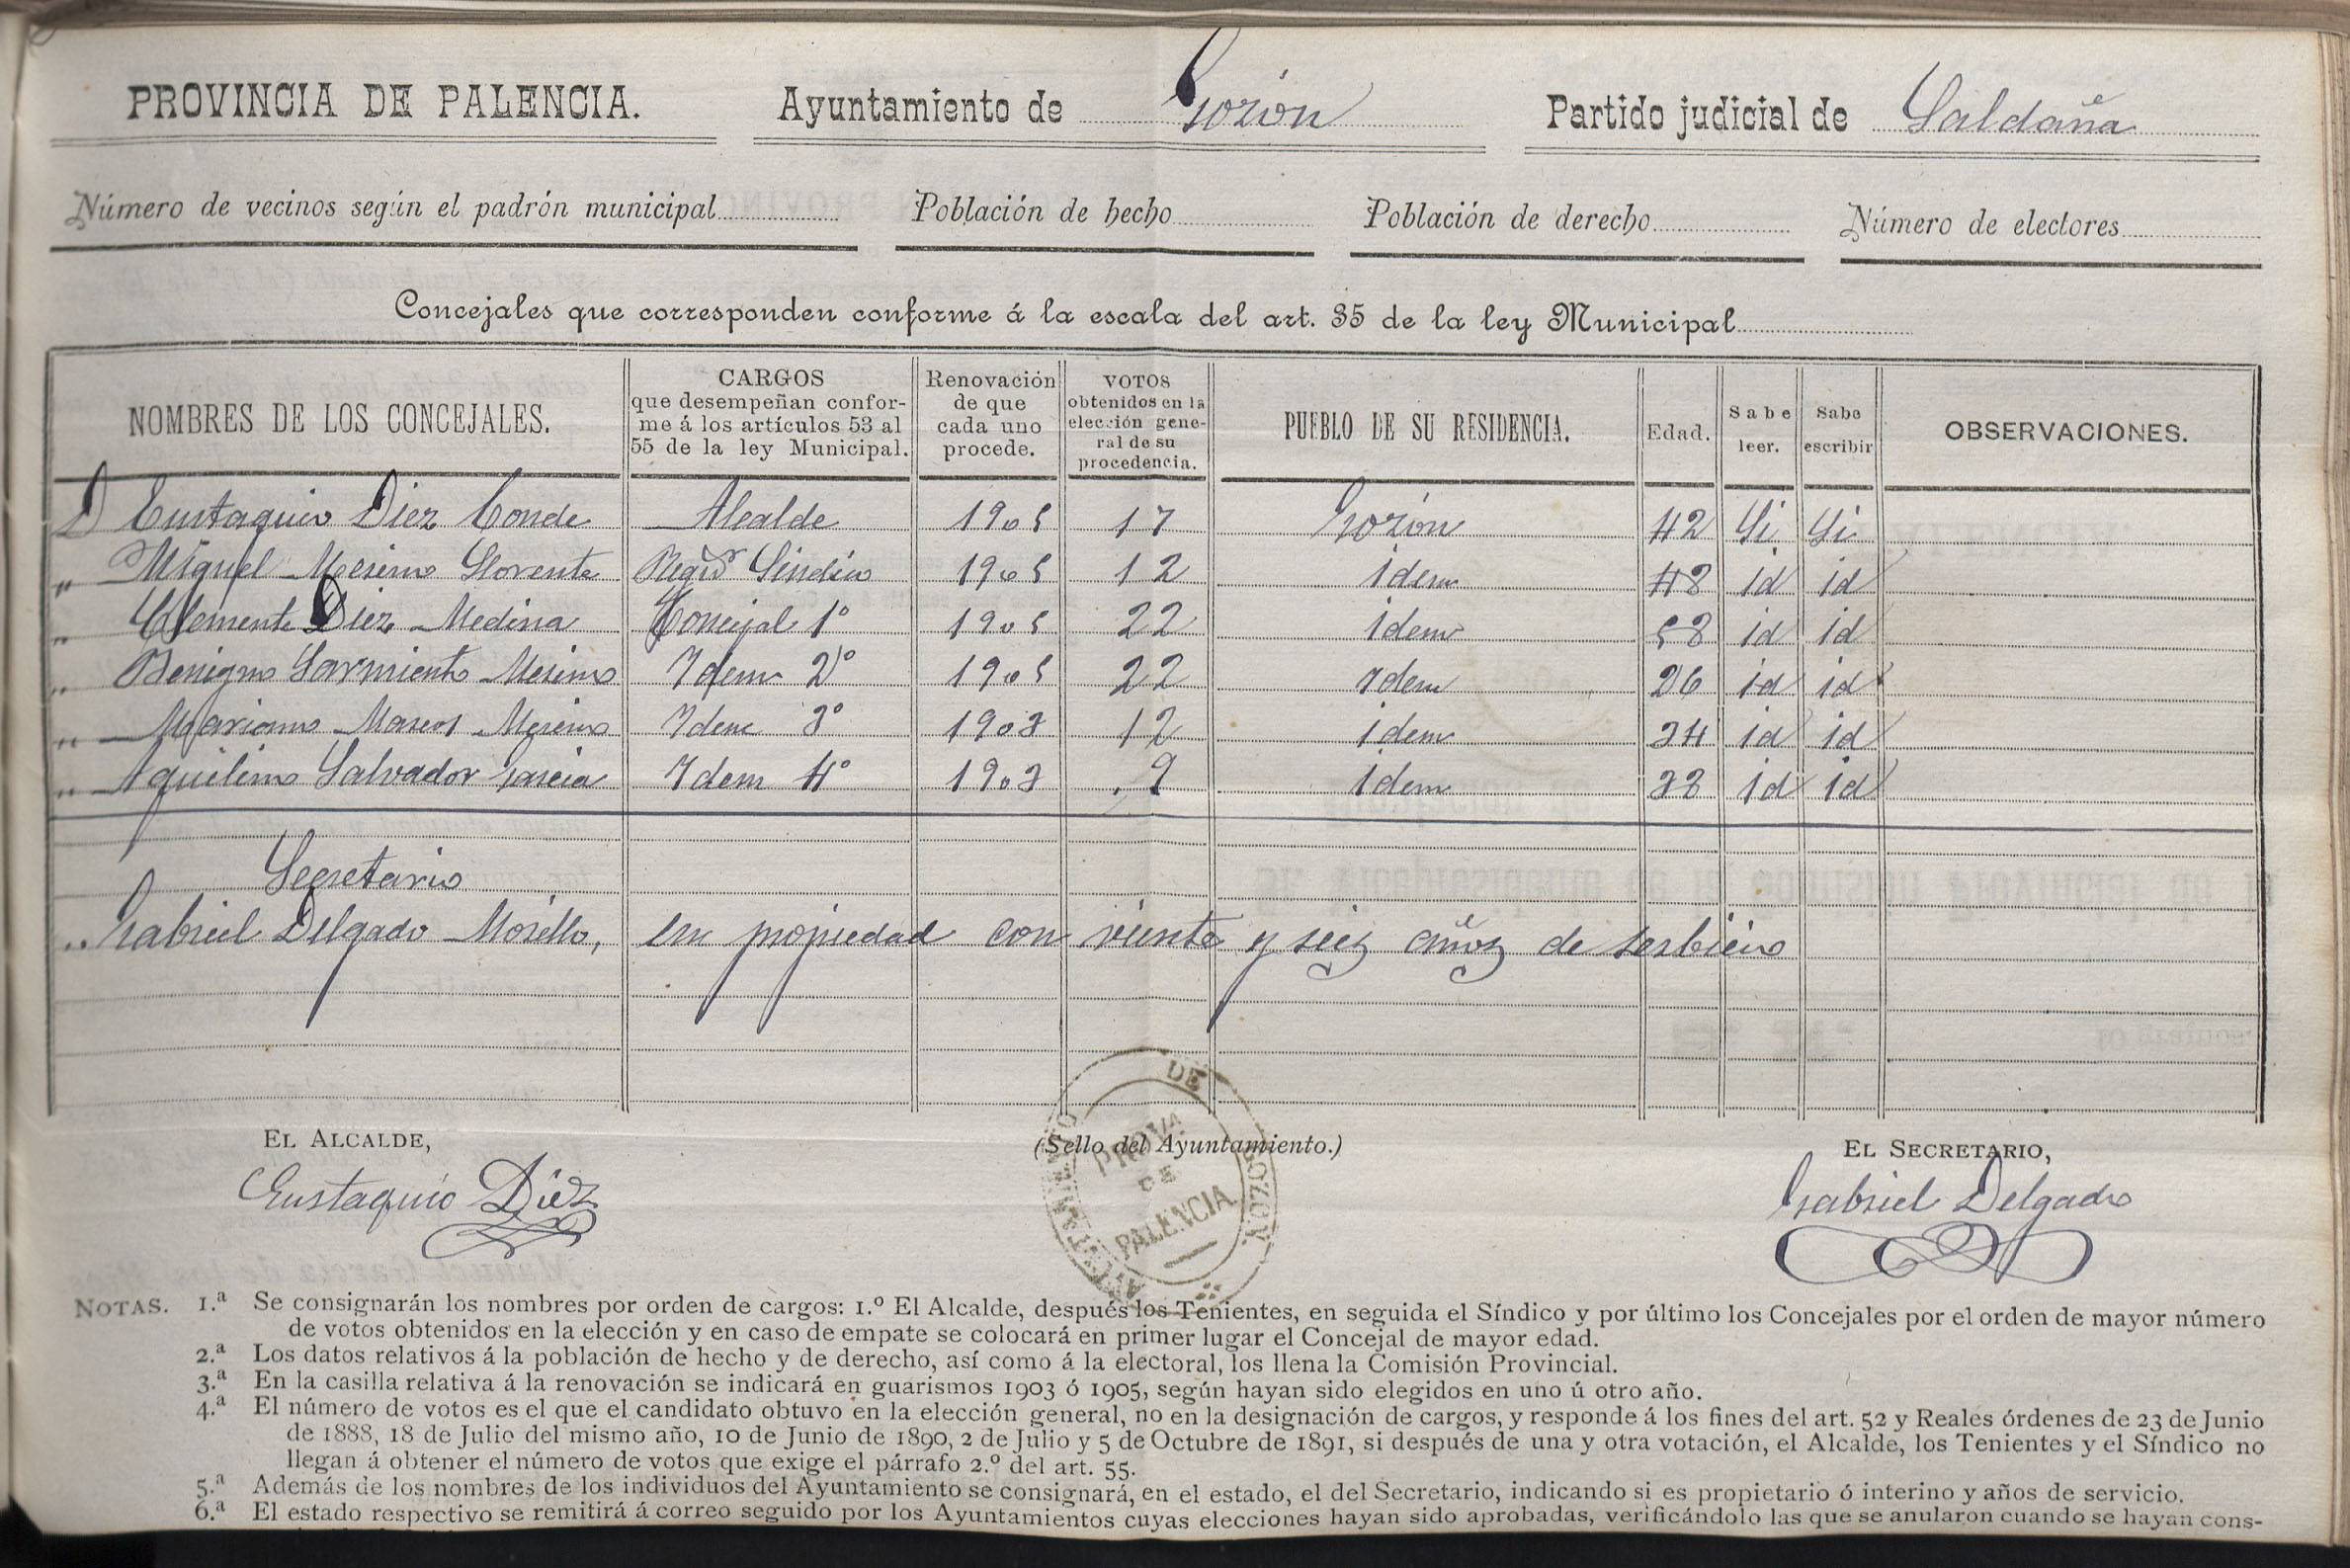 PROVINCIA DE PALENCIA. Ayuntamiento de Gozón Partido judicial de Saldaña
Número de vecinos según el padrón municipal Población de hecho Población de derecho Número de electores
Concejales que corresponden conforme á la escala del art. 35 de la ley Municipal
NOMBRES DE LOS CONCEJALES.
CARGOS
que desempeñan confor-
me á los artículos 53 al
55 de la ley Municipal.
Renovación
de que
cada uno
procede.
VOTOS
obtenidos en la
elección gene-
ral de su
procedencia.
PUEBLO DE SU RESIDENCIA.
Edad.
Sabe
leer.
Sabe
escribir
OBSERVACIONES.
D Eustaquio Diez Conde Alcalde 1905 17 Gozón 42 Si Si
" Miguel Merino Llorente Regidr Sindico 1905 12 idem 48 id id
" Clemente Diez Medina Concejal 1º 1905 22 idem 58 id id
" Benigno Sarmiento Merino Idem 2º 1905 22 idem 26 id id
" Mariano Marcos Merino Idem 3º 1903 12 idem 34 id id
" Aquilino Salvador Garcia Idem 4º 1903 9 idem 38 id id
Secretario
" Gabriel Delgado Morillo, en propiedad con viente y seis años de serbicio
EL ALCALDE, (Sello del Ayuntamiento.) EL SECRETARIO,
AYUNTAMIENTO DE GOZON
PROVA
DE
PALENCIA
Eustaquio Diez Gabriel Delgado
NOTAS. 1.ª Se consignarán los nombres por orden de cargos: 1.º El Alcalde, después los Tenientes, en seguida el Síndico y por último los Concejales por el orden de mayor número
de votos obtenidos en la elección y en caso de empate se colocará en primer lugar el Concejal de mayor edad.
2.ª Los datos relativos á la población de hecho y de derecho, así como á la electoral, los llena la Comisión Provincial.
3.ª En la casilla relativa á la renovación se indicará en guarismos 1903 ó 1905, según hayan sido elegidos en uno ú otro año.
4.ª El número de votos es el que el candidato obtuvo en la elección general, no en la designación de cargos, y responde á los fines del art. 52 y Reales órdenes de 23 de Junio
de 1888, 18 de Julio del mismo año, 10 de Junio de 1890, 2 de Julio y 5 de Octubre de 1891, si después de una y otra votación, el Alcalde, los Tenientes y el Síndico no
llegan á obtener el número de votos que exige el párrafo 2.º del art. 55.
5.ª Además de los nombres de los individuos del Ayuntamiento se consignará, en el estado, el del Secretario, indicando si es propietario ó interino y años de servicio.
6.ª El estado respectivo se remitirá á correo seguido por los Ayuntamientos cuyas elecciones hayan sido aprobadas, verificándolo las que se anularon cuando se hayan cons-